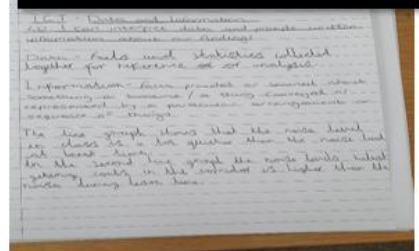 I.C.T - Data and Information
I can interpret data and provide written
information about my findings
Data - Facts and statistics collected
together for reference or analysis
Information - facts provided or learned about
something or someone / a thing conveyed or
represented by a particular arrangement or
sequence of things.
The line graph shows that the noise level
in class is a lot quieter than the noise level
at break time.
In the second line graph the noise levels whilst
getting coats in the corridor is higher than the
noise during lesson time.